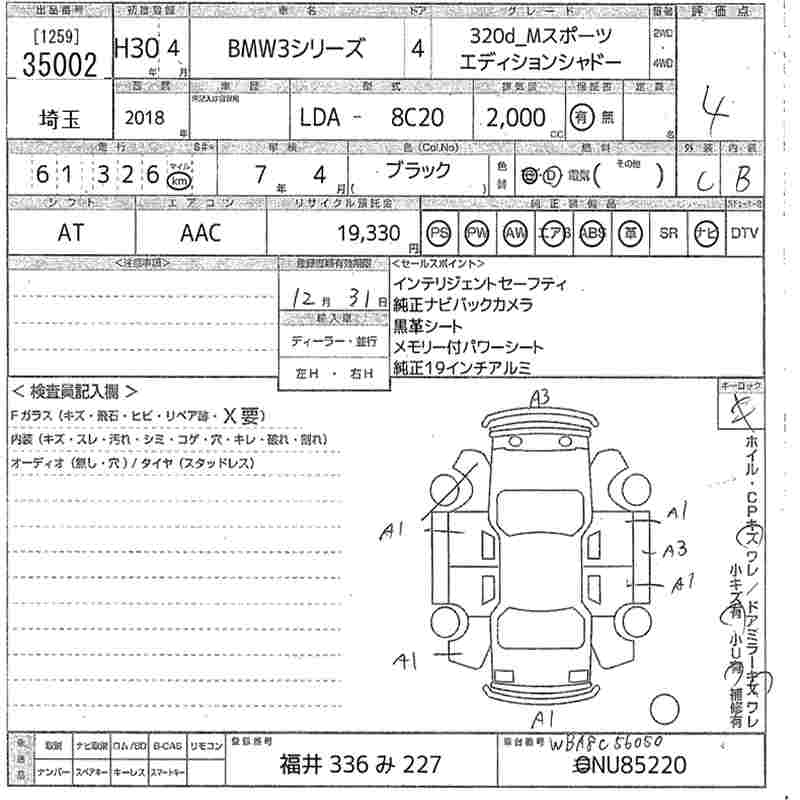 出品番号 初度登録 車名 ドア グレード 駆動 評価点
[1259]
35002 H30 4 BMW3シリーズ 4 320d_Mスポーツ
エディションシャドー
2WD
4WD
年 月
4
車歴 型式 排気量 保証書 定員
埼玉 2018 年 LDA - 8C20 2,000 cc 有 無 名
走行 車検 色(Col.No) 燃料 外装 内装
61326 マイル km 7年 4月 ブラック ( ) 色替 D 電気 ( その他 ) C B
シフト エアコン リサイクル預託金 純正装備品
AT AAC 19,330円 PS PW AW エアB ABS 革 SR ナビ DTV
<注意事項> <セールスポイント>
12月 31日
インテリジェントセーフティ
純正ナビバックカメラ
輸入車
黒革シート
ディーラー・並行
メモリー付パワーシート
左H ・ 右H
純正19インチアルミ
< 検査員記入欄 >
キーロック
Fガラス (キズ・飛石・ヒビ・リペア跡・X要)
内装 (キズ・スレ・汚れ・シミ・コゲ・穴・キレ・破れ・割れ)
オーディオ (無し・穴) / タイヤ (スタッドレス)
A3
A1
A1
A3
A1
A1
A1
ホイル・CPキズ ワレ / ドアミラーキズ ワレ
小キズ有 小U有 補修有
取説 ナビ取説 ロム/SD B-CAS リモコン
ナンバー スペアキー キーレス スマートキー
登録番号
福井 336 み 227
車台番号 WBA8C56050
NU85220